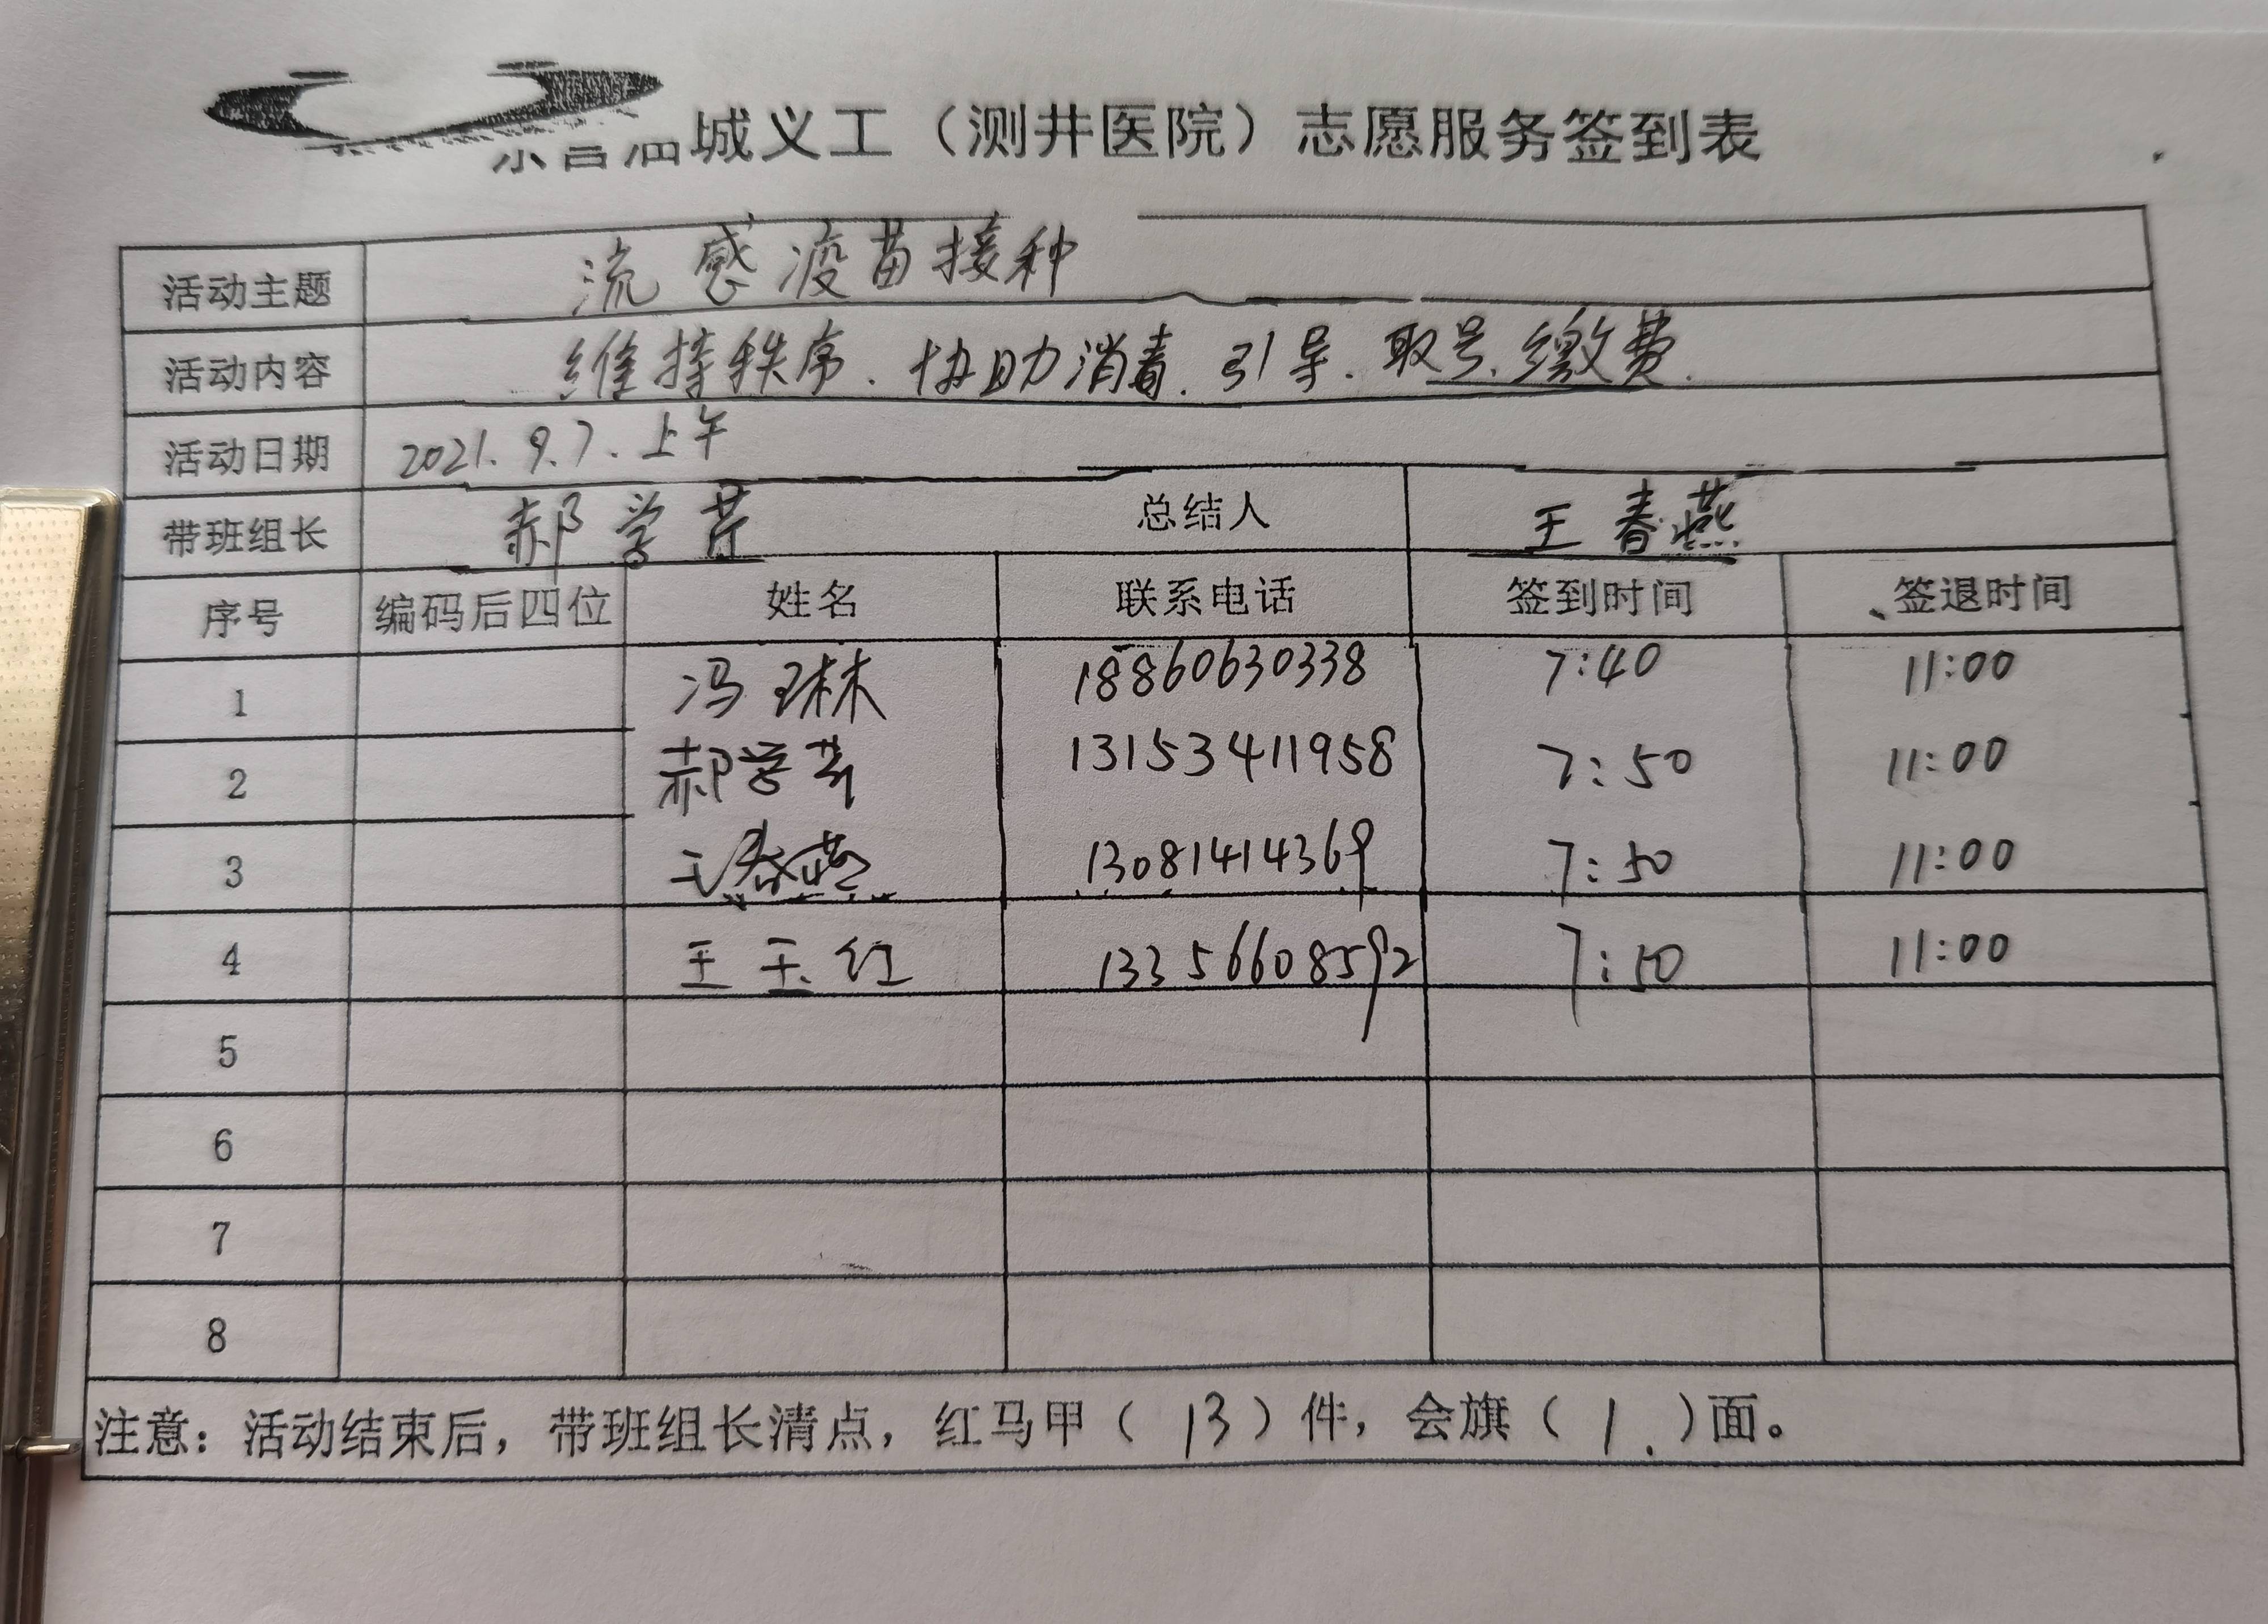 城义工（测井医院）志愿服务签到表
活动主题 流感疫苗接种
活动内容 维持秩序、协助消毒、引导、取号、缴费.
活动日期 2021.9.7.上午
带班组长 郝学芹 总结人 王春燕
序号 编码后四位 姓名 联系电话 签到时间 签退时间
1 冯琳 18860630338 7:40 11:00
2 郝学芹 13153411958 7:50 11:00
3 王春燕 13081414369 7:50 11:00
4 王玉红 13356608592 7:50 11:00
5
6
7
8
注意：活动结束后，带班组长清点，红马甲（ 13 ）件，会旗（ 1. ）面。